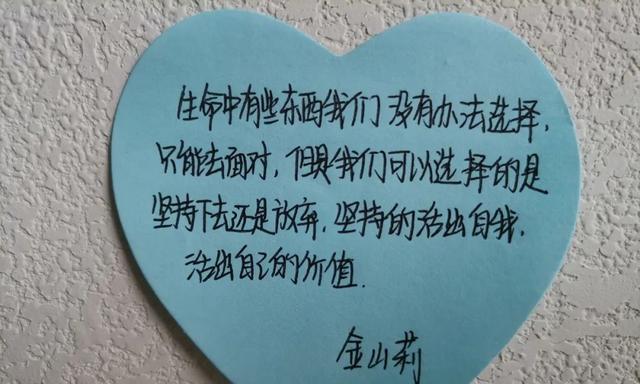 生命中有些东西我们没有办法选择,
只能去面对,但是我们可以选择的是
坚持下去还是放弃,坚持的活出自我,
活出自己的价值.
金山莉